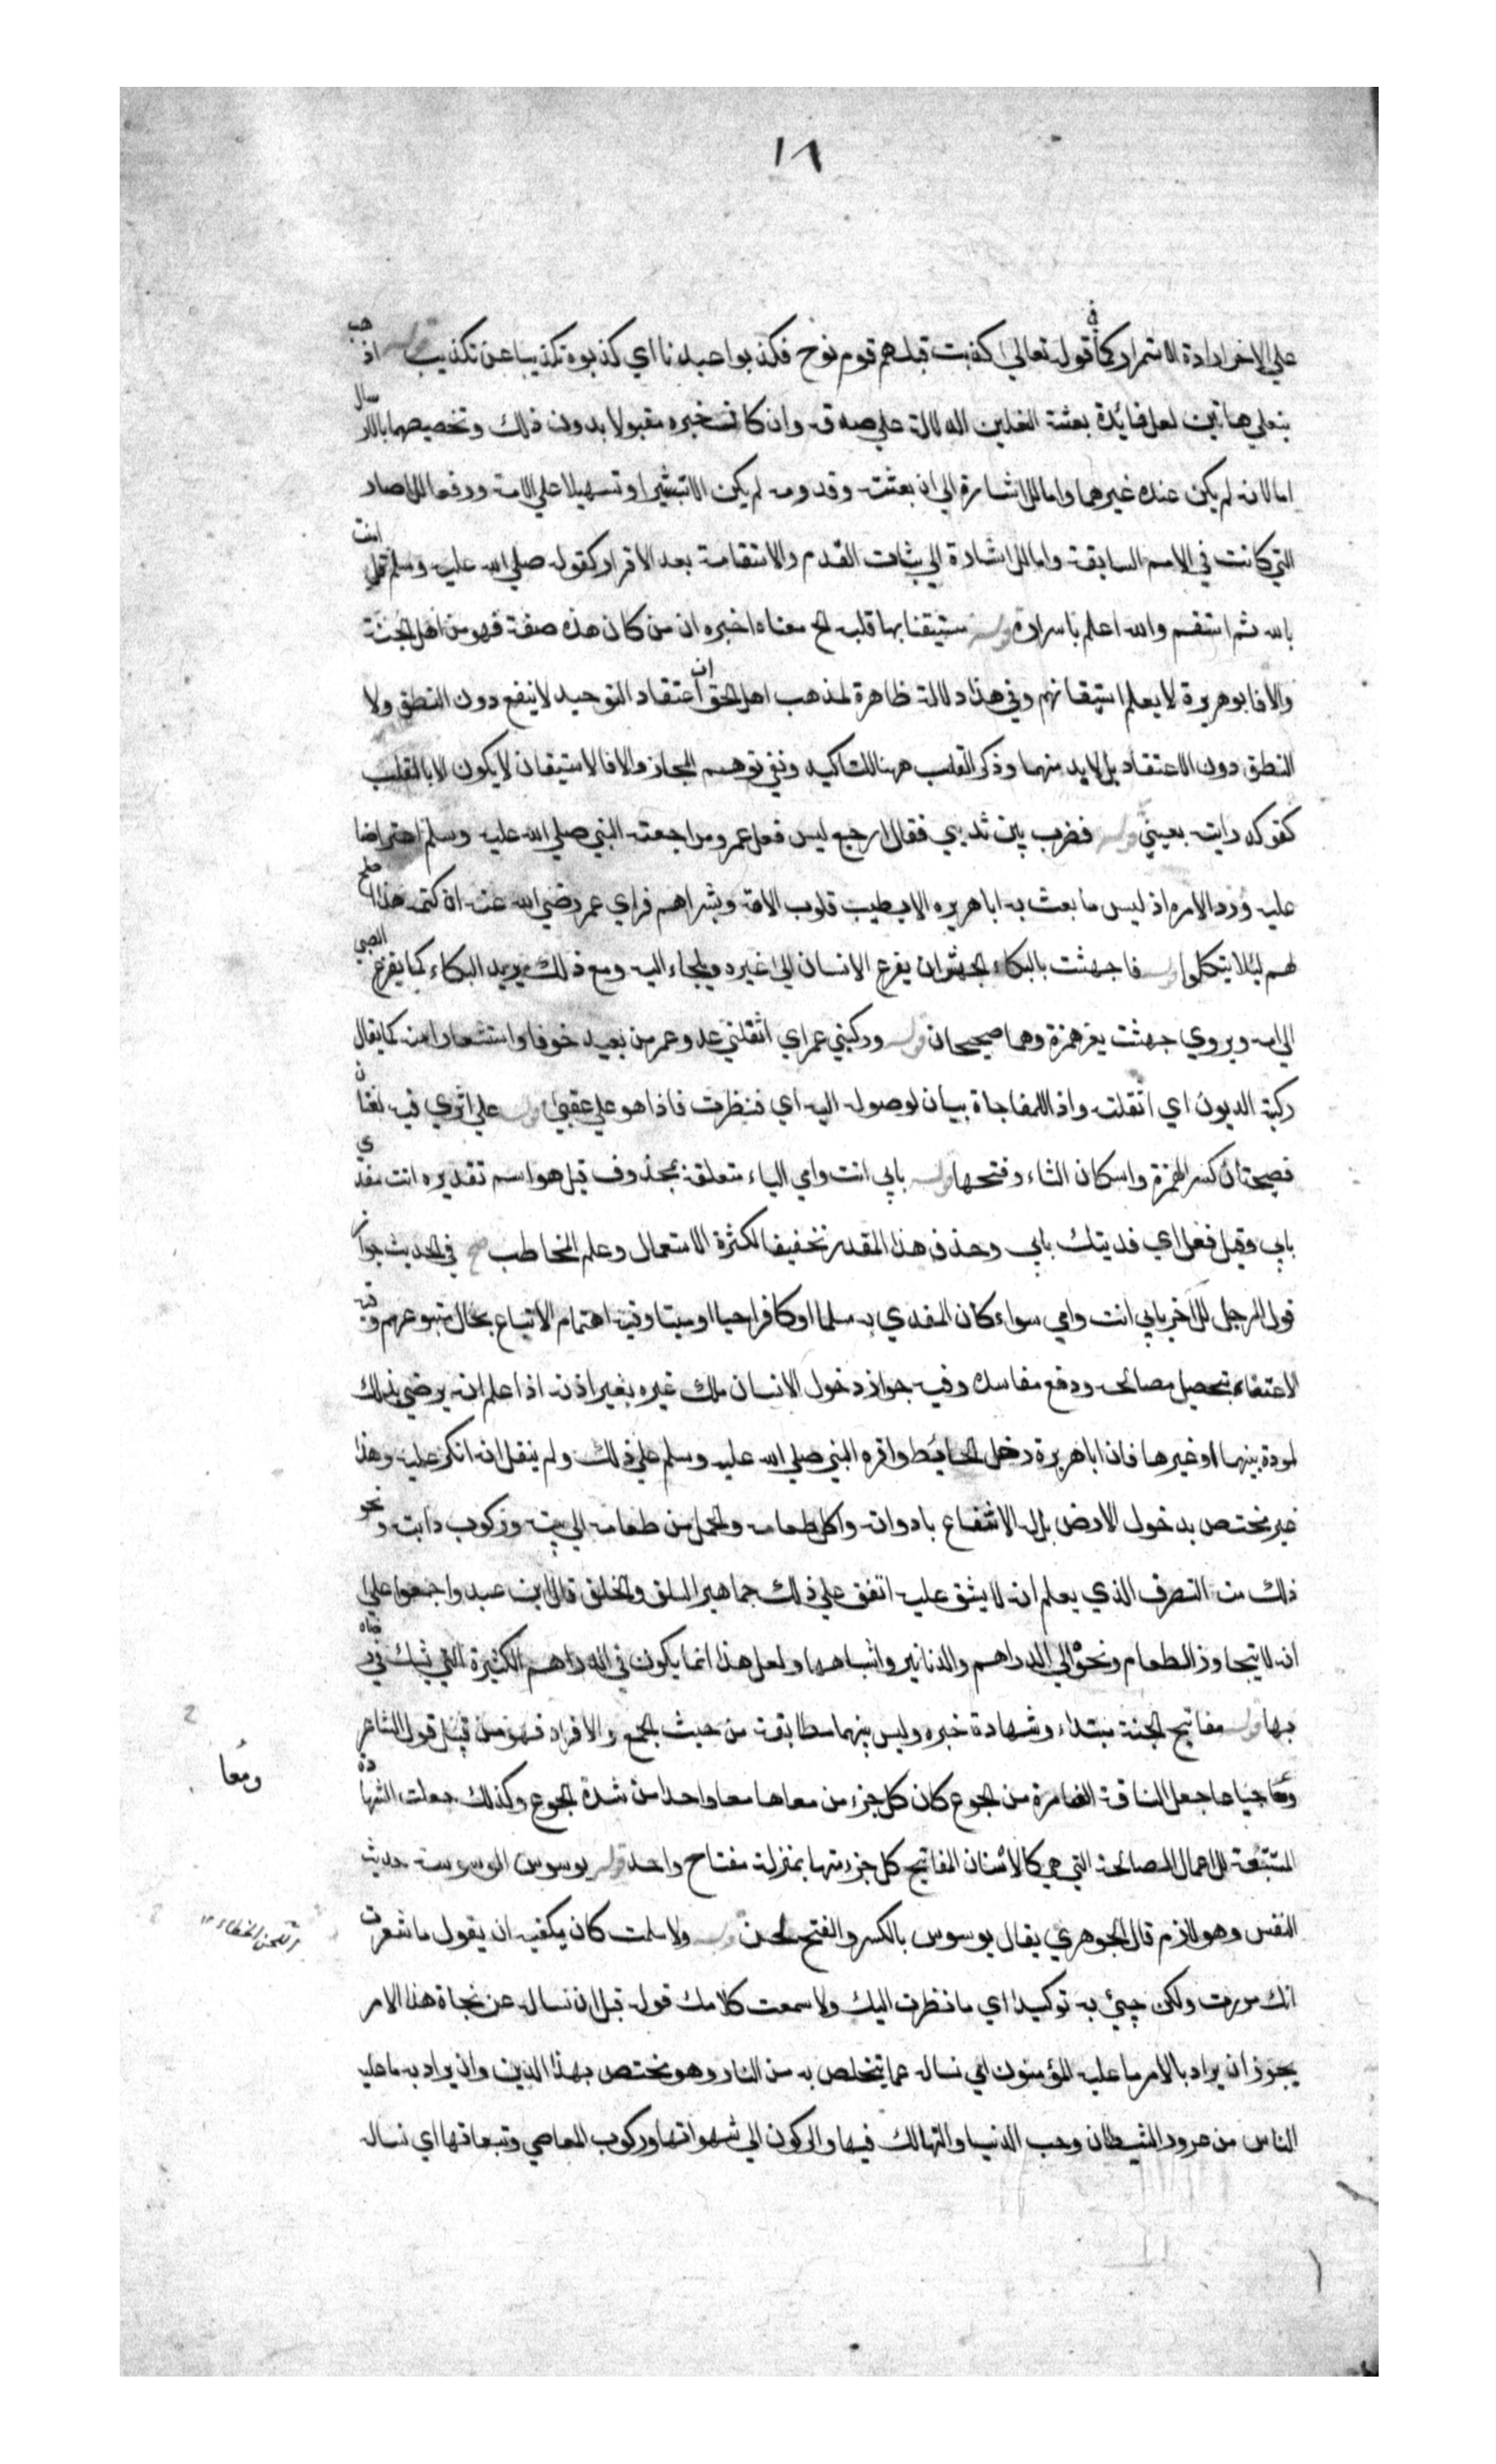 ١٨
علي الاخر ارادة الاستمرار كما في قوله تعالي كذبت قبلهم قوم نوح فكذبوا عبدنا اي كذبوه تكذيبا عن تكذيب قوله اذهب
بنعلي هاتين لعل فائدة بعثة النعلين الدلالة علي صدقه وان كان خبره مقبولا بدون ذلك وتخصيصهما بالارسال
اما لانه لم يكن عنده غيرهما واما للاشارة الي ان بعثته وقدومه لم يكن الا تبشيرا وتسهيلا علي الامة ورفعا للاصار
التي كانت في الامم السابقة واما للاشارة الي ثبات القدم والاستقامة بعد الاقرار كقوله صلي الله عليه وسلم قل امنت
بالله ثم استقم والله اعلم باسراره قوله مستيقنا بها قلبه الخ معناه اخبره ان من كان هذه صفته فهو من اهل الجنة
والا فابوهريرة لا يعلم استيقانهم وفي هذا دلالة ظاهرة لمذهب اهل الحق ان اعتقاد التوحيد لا ينفع دون النطق ولا
النطق دون الاعتقاد بل لابد منهما وذكر القلب ههنا للتاكيد ونفي توهم المجاز والا فالاستيقان لا يكون الا بالقلب
كقولك رايته بعيني قوله فضرب بين ثديي فقال ارجع ليس فعل عمر ومراجعته النبي صلي الله عليه وسلم اعتراضا
عليه وردا لامره اذ ليس ما بعث به ابا هريره الا يطيب قلوب الامة وبشراهم فراي عمر رضي الله عنه ان كتمه هذا اصلح
لهم ليلا يتكلوا قوله فاجهشت بالبكاء الجهش ان يفزع الانسان الي غيره ويلجاء اليه ومع ذلك يريد البكاء كما يفزع الصبي
الي امه ويروي جهشت بغير همزة وهما صحيحان قوله وركبني عمر اي اثقلني عدو عمر من بعيد خوفا واستشعارا منه كما يقال
ركبته الديون اي اثقلته واذا للمفاجاة بيان لوصوله اليه اي فنظرت فاذا هو علي عقبي قوله علي اثري فيه لغتان
فصيحتان كسر الهمزة واسكان الثاء وفتحها قوله بابي انت وامي الباء متعلقة بمحذوف قيل هو اسم تقديره انت مفدي
بابي وقيل فعل اي فديتك بابي وحذف هذا المقدر تخفيفا لكثرة الاستعمال وعلم المخاطب في الحديث جواز
قول الرجل للاخر بابي انت وامي سواء كان المفدي به مسلما او كافرا حيا او ميتا وفيه اهتمام الاتباع بحال متبوعهم وفيه
الاعتناء بتحصيل مصالحه ودفع مفاسده وفيه جواز دخول الانسان ملك غيره بغير اذنه اذا علم انه يرضي بذلك
لمودة بينهما او غيرها فان ابا هريرة دخل الحائط واقره النبي صلي الله عليه وسلم علي ذلك ولم ينقل انه انكر عليه وهذا
غير مختص بدخول الارض بل له الانتفاع بادواته واكل طعامه والحمل من طعامه الي بيته وركوب دابته ونحو
ذلك من التصرف الذي يعلم انه لا يشق عليه اتفق علي ذلك جماهير السلف والخلف قال ابن عبد واجمعوا علي
انه لا يتجاوز الطعام ونحوه الي الدراهم والدنانير واشباهها ولعل هذا انما يكون في الدراهم الكثيرة التي يشك في رضاه
بها قوله مفاتيح الجنة مبتداء وشهادة خبره وليس بينهما مطابقة من حيث الجمع والافراد فهو من قبيل قول الشاعر
ومعا جياعا جعل الناقة الضامرة من الجوع كان كل جزء من معاها معا واحدا من شدة الجوع وكذلك جعلت الشهادة
المستتبعة للاعمال الصالحة التي هي كالاسنان المفاتيح كل جزء منها بمنزلة مفتاح واحد قوله يوسوس الوسوسة حديث
النفس وهو لازم قال الجوهري يقال يوسوس بالكسر والفتح لحن قوله ولا سلمت كان يكفيه ان يقول ما شعرت
انك مررت ولكن جيئ به توكيدا اي ما نظرت اليك ولا سمعت كلامك قوله قبل ان نساله عن نجاة هذا الامر
يجوز ان يراد بالامر ما عليه المؤمنون اي نساله عما يتخلص به من النار وهو مختص بهذا الدين وان يراد به ما عليه
الناس من غرور الشيطان وحب الدنيا والتهالك فيها والركون الي شهواتها وركوب المعاصي وتبعاتها اي نساله
ومُعا
اللحن الخطاء